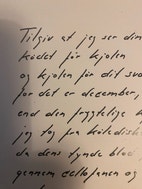 Tilgiv at jeg ser din
kødet før kjolen
og kjolen før dit
for det er december,
end den frygtelige
jeg tog fra kølediske
da dens tynde blod
gennem cellofanen og